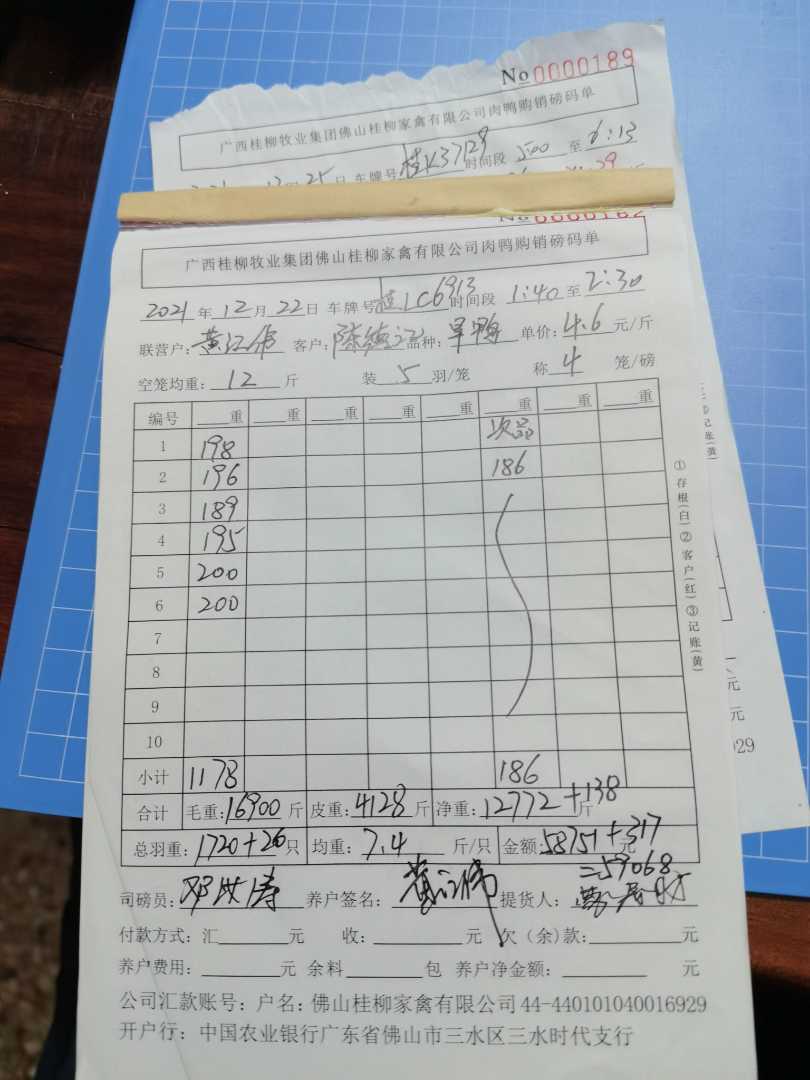 No 0000189
广西桂柳牧业集团佛山桂柳家禽有限公司肉鸭购销磅码单
12月25日 车牌号桂K37129时间段 500 至 6:13
No 0000182
广西桂柳牧业集团佛山桂柳家禽有限公司肉鸭购销磅码单
2021 年 12 月 22 日 车牌号桂LC6913时间段 1:40 至 2:30
联营户: 黄江伟 客户: 品种: 旱鸭 单价: 4.6 元/斤
空笼均重: 12 斤 装 5 羽/笼 称 4 笼/磅
编号 重 重 重 重 重 重 重 重
1 198 次品
2 196 186
3 189
4 195
5 200
6 200
7
8
9
10
小计 1178 186
合计 毛重:16900 斤 皮重:4128 斤 净重:12772+138 斤
总羽重:1720+26 只 均重: 7.4 斤/只 金额:58751+317 元
=59068
司磅员: 养户签名: 提货人:
付款方式: 汇 元 收: 元 欠(余)款: 元
养户费用: 元 余料 包 养户净金额: 元
公司汇款账号: 户名: 佛山桂柳家禽有限公司 44-440101040016929
开户行: 中国农业银行广东省佛山市三水区三水时代支行
①存根(白)②客户(红)③记账(黄)
记账(黄)
元
元
929